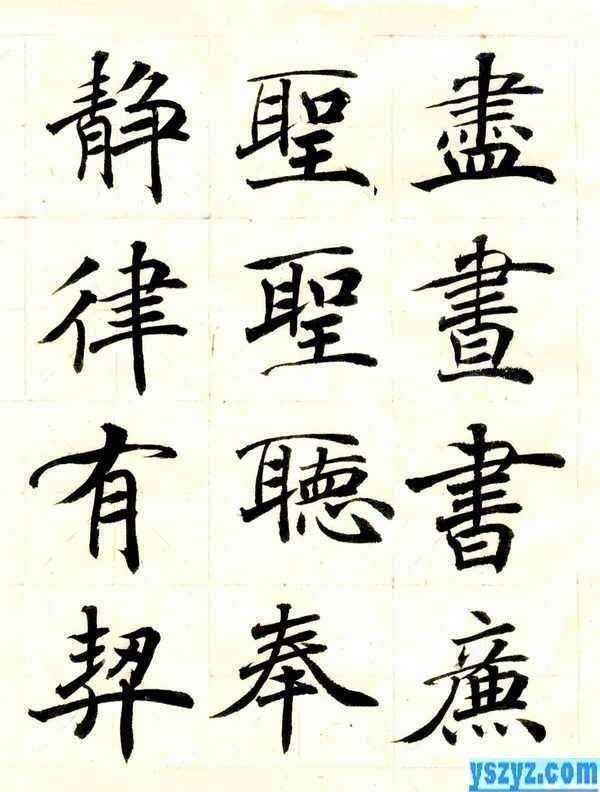 盡晝書廉
聖聖聽奉
静律有契
yszyz.com